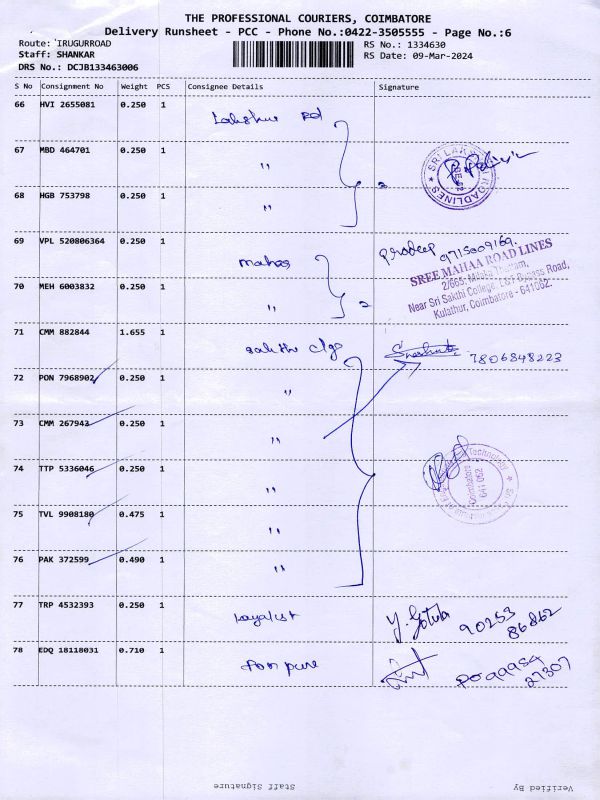 THE PROFESSIONAL COURIERS, COIMBATORE
Delivery Runsheet - PCC - Phone No.:0422-3505555 - Page No.:6
Route: IRUGURROAD
Staff: SHANKAR
DRS No.: DCJB133463006
RS No.: 1334630
RS Date: 09-Mar-2024
S No Consignment No Weight PCS Consignee Details Signature
66 HVI 2655081 0.250 1 Rd
67 MBD 464701 0.250 1 "
SRI LAKSHMI ROADLINES
68 HGB 753798 0.250 1 " 3
69 VPL 520806364 0.250 1 mahas Pradeep 9715009169.
SREE MAHAA ROAD LINES
2/665, Thottam,
Near Sri Sakthi College, L&T Bypass Road,
Kulathur, Coimbatore - 641062.
70 MEH 6003832 0.250 1 " 2
71 CMM 882844 1.655 1 sakthi clge 7806848223
72 PON 7968902 0.250 1 "
73 CMM 267943 0.250 1 "
74 TTP 5336046 0.250 1 "
Technology
Coimbatore
641 062
75 TVL 9908180 0.475 1 "
76 PAK 372599 0.490 1 "
77 TRP 4532393 0.250 1 90253
86862
78 EDQ 18118031 0.710 1 pure
27307
Staff Signature
Verified By